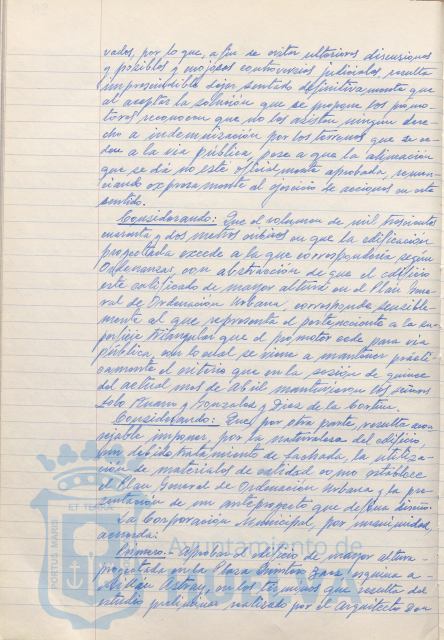 vados, por lo que, a fin de evitar ulteriores discusiones
y posibles y enojosas controversias judiciales, resulta
imprescindible dejar sentado definitivamente que
al aceptar la solución que se propone los promo-
tores reconocen que no les asiste ningún dere-
cho a indemnización por los terrenos que se ce-
den a la vía pública, pese a que la alineación
que se da no esté oficialmente aprobada, renun-
ciando expresamente al ejercicio de acciones en este
sentido.
Considerando: Que el volumen de mil trescientos
cuarenta y dos metros cúbicos en que la edificación
proyectada excede a la que correspondería según
Ordenanzas, con abstracción de que el edificio
esté calificado de mayor altura en el Plan Gene-
ral de Ordenación Urbana, corresponde sensible-
mente al que representa el perteneciente a la su-
perficie triangular que el promotor cede para vía
pública, con lo cual se viene a mantener prácti-
camente el criterio que en la sesión de quince
del actual mes de Abril mantuvieron los señores
Lobo y González y Díez de la Cortina.
Considerando: Que, por otra parte, resulta acon-
sejable imponer, por la naturaleza del edificio,
un debido tratamiento de fachada, la utiliza-
ción de materiales de calidad como establece
el Plan General de Ordenación Urbana y la pre-
sentación de un anteproyecto que
La Corporación Municipal, por unanimidad,
acuerda:
Primero: Aprobar el edificio de mayor altura
proyectado en la Plaza Quintero Báez, esquina a
Millán Astray, en los términos que resulta del
estudio preliminar realizado por el Arquitecto Don
PORTUS MARIS
ET TERRÆ
Ayuntamiento de
HUELVA